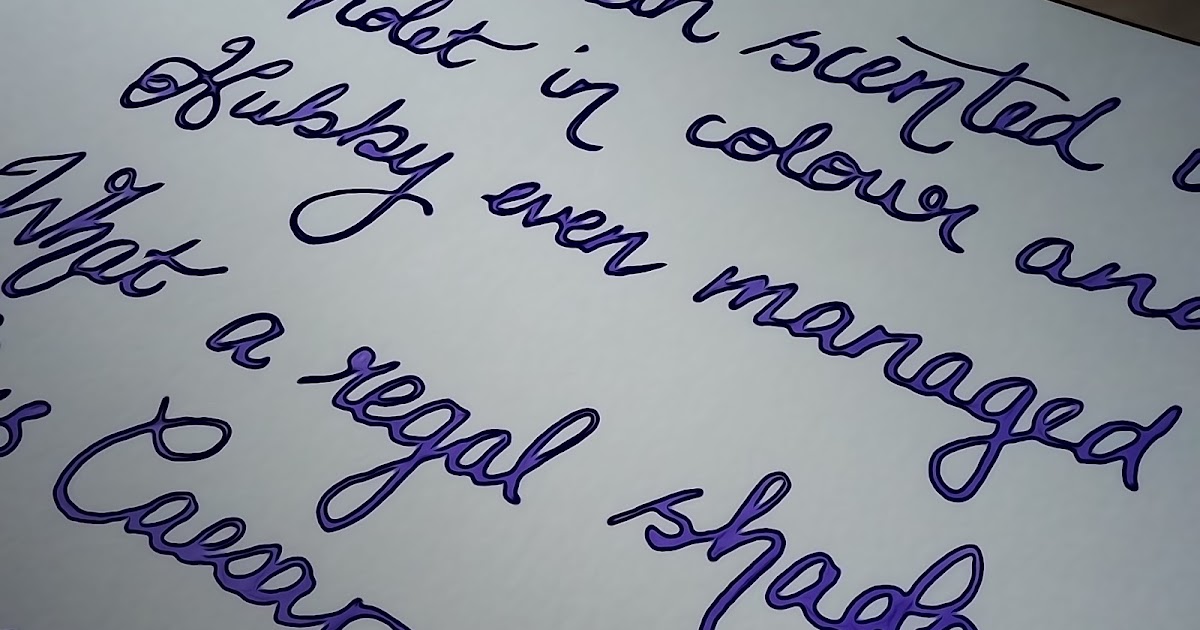 scented
violet in colour and
Hubby even managed
What a regal shade
Caesar